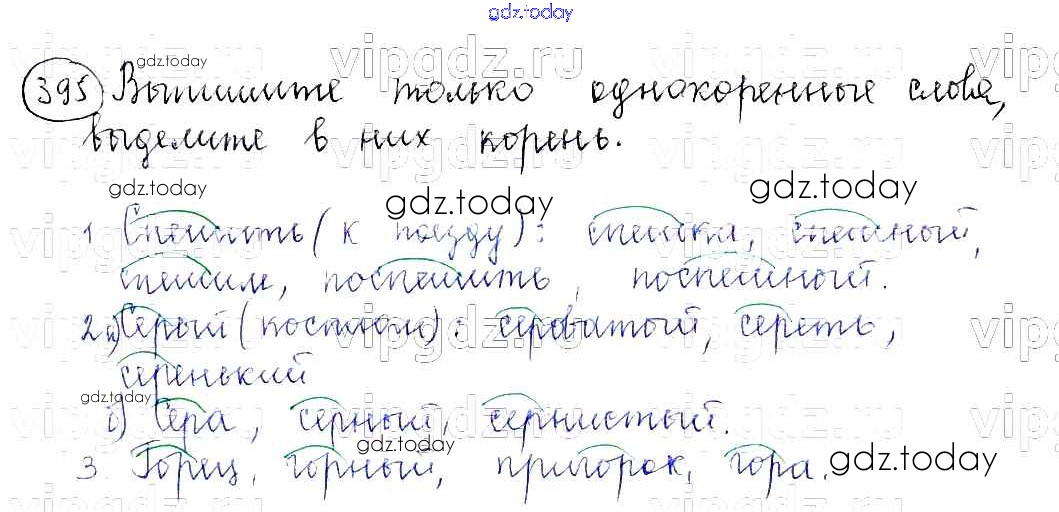 gdz.today
gdz.today
395 Выпишите только однокоренные слова,
выделите в них корень.
gdz.today gdz.today gdz.today
1. Спешить (к поезду): спешка, спешный,
спешим, поспешить, поспешный.
2 а) Серый (костюм): сероватый, сереть,
серенький
gdz.today
б) Сера, серный, сернистый.
gdz.today
3. Горец, горный, пригорок, гора. gdz.today
vipgdz.ru